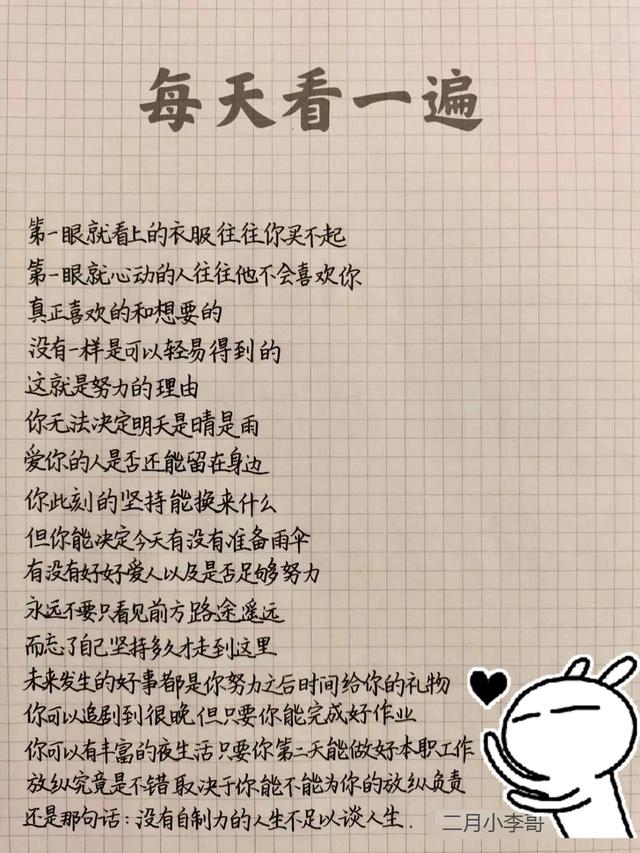 每天看一遍
第一眼就看上的衣服往往你买不起
第一眼就心动的人往往他不会喜欢你
真正喜欢的和想要的
没有一样是可以轻易得到的
这就是努力的理由
你无法决定明天是晴是雨
爱你的人是否还能留在身边
你此刻的坚持能换来什么
但你能决定今天有没有准备雨伞
有没有好好爱人以及是否足够努力
永远不要只看见前方路途遥远
而忘了自己坚持多久才走到这里
未来发生的好事都是你努力之后时间给你的礼物
你可以追剧到很晚,但只要你能完成好作业
你可以有丰富的夜生活只要你第二天能做好本职工作
放纵究竟是不错取决于你能不能为你的放纵负责
还是那句话:没有自制力的人生不足以谈人生.
二月小李哥